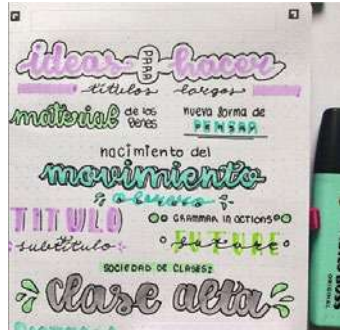 ideas PARA hacer
títulos largos
material de los genes
nueva forma de
PENSAR
nacimiento del
movimiento
obrero
TITULO
subtítulo
GRAMMAR IN ACTIONS
FUTURE
SOCIEDAD DE CLASES:
clase alta
BOSS